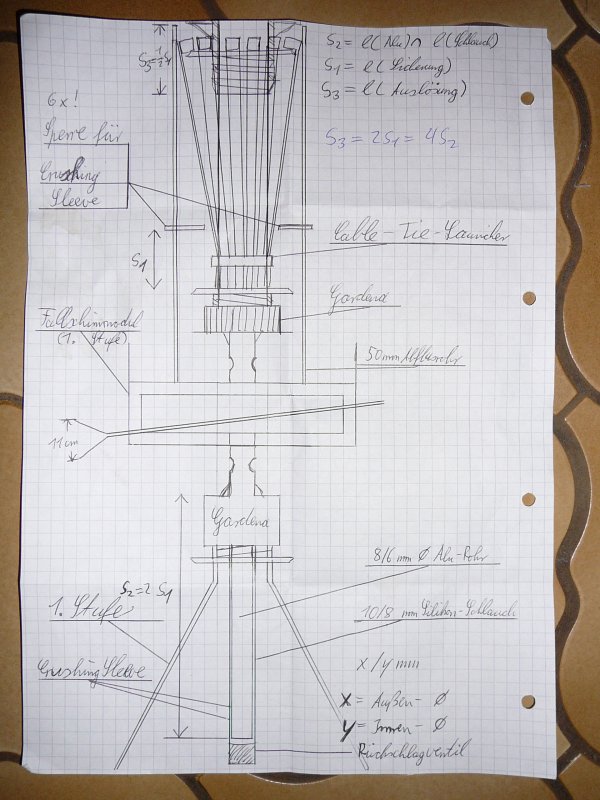 S₃=½S₁
S₂ = l(Alu) ∩ l(Schlauch)
S₁ = l(Sicherung)
S₃ = l(Auslösung)
S₃ = 2S₁ = 4S₂
6x!
Sperre für
Crushing
Sleeve
S₁
Cable-Tie-Launcher
Gardena
Fallschirmmodul
(1. Stufe)
50mm Abflussrohr
11cm
Gardena
8/6 mm Ø Alu-Rohr
S₂=2 S₁
1. Stufe
10/8 mm Silikon-Schlauch
Crushing Sleeve
x/y mm
x = Außen-Ø
y = Innen-Ø
Rückschlagventil